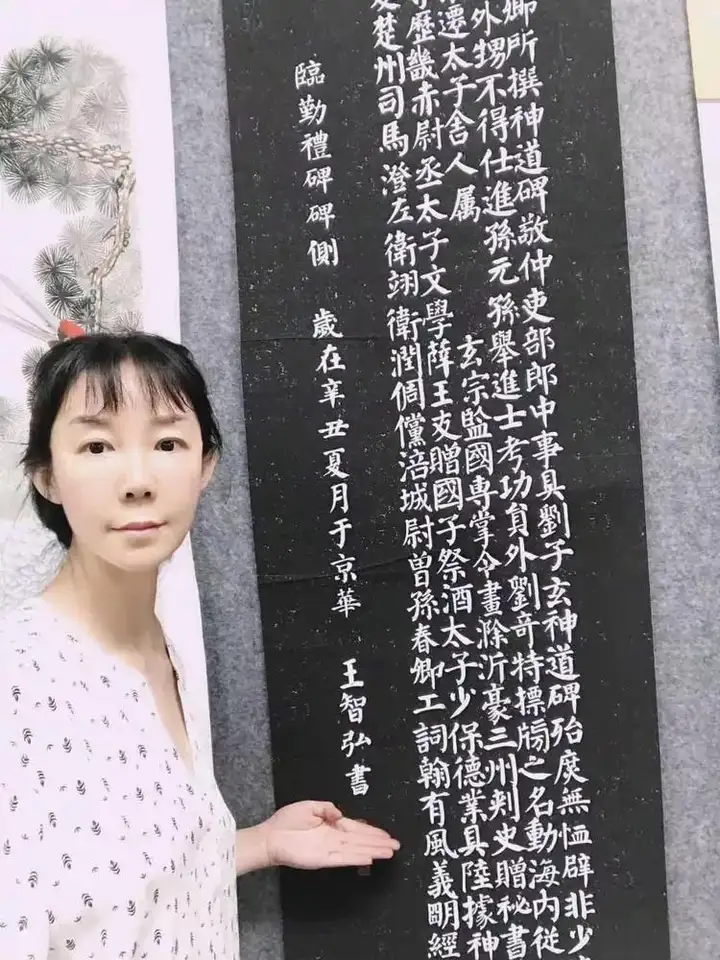 卿所撰神道碑敬仲吏部郎中事具劉子玄神道碑殆庶無恤辟非少
外甥不得仕進孫元孫舉進士考功員外劉奇特標牓之名動海內從
遷太子舍人屬 玄宗監國專掌令畫滁沂豪三州刺史贈秘書
歷畿赤尉丞太子文學薛王友贈國子祭酒太子少保德業具陸據神
楚州司馬澄左衛翊衛潤倜儻涪城尉曾孫春卿工詞翰有風義明經
臨勤禮碑碑側 歲在辛丑夏月于京華 王智弘書